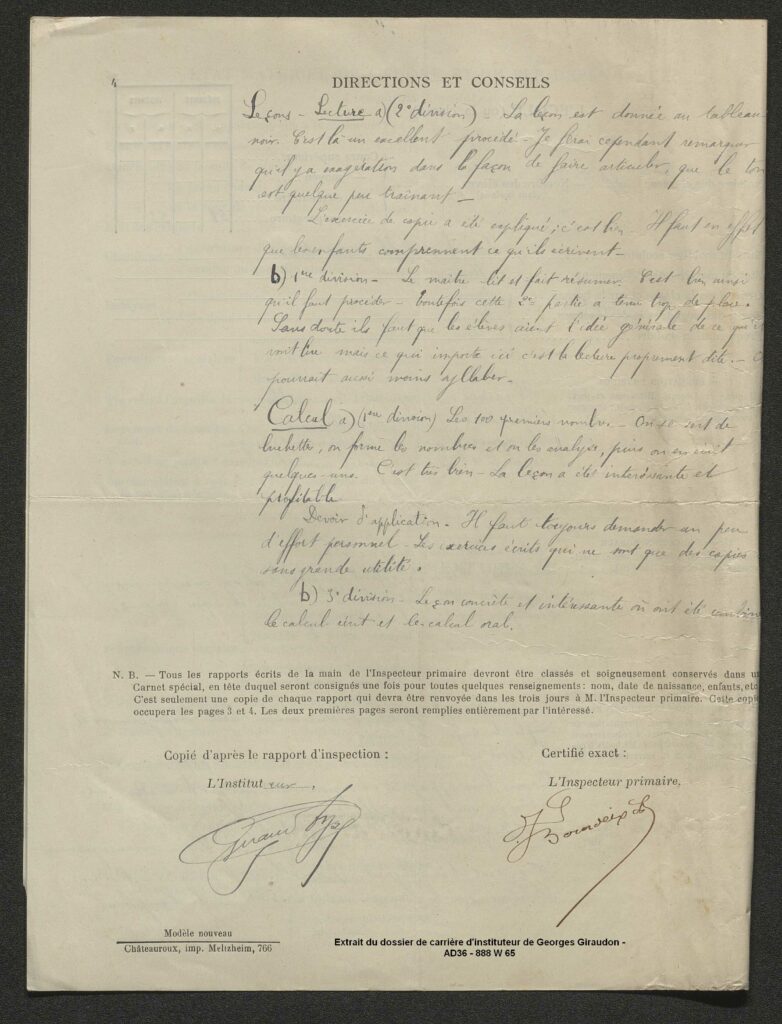 4
DIRECTIONS ET CONSEILS
Leçons - Lecture a) (2e division) La leçon est donnée au tableau
noir. C'est là un excellent procédé - Je ferai cependant remarquer
qu'il y a exagération dans la façon de faire articuler, que le ton
est quelque peu traînant -
L'exercice de copie a été expliqué ; c'est bien. Il faut en effet
que les enfants comprennent ce qu'ils écrivent -
b) 1re division - Le maître lit et fait résumer. C'est bien ainsi
qu'il faut procéder - Toutefois cette 2e partie a tenu trop de place.
Sans doute ils faut que les élèves aient l'idée générale de ce qu'i
vont lire mais ce qui importe ici c'est la lecture proprement dite. -
pourrait aussi moins syllaber -
Calcul a) (1re division) Les 100 premiers nombres - On se sert de
buchettes, on forme les nombres et on les analyse, puis on en écrit
quelques-uns. C'est très bien - La leçon a été intéressante et
profitable
Devoir d'application - Il faut toujours demander un peu
d'effort personnel - Les exercices écrits qui ne sont que des copies
sans grande utilité.
b) 3e division - Leçon concrète et intéressante où ont été combin
le calcul écrit et le calcul oral.
N. B. — Tous les rapports écrits de la main de l'Inspecteur primaire devront être classés et soigneusement conservés dans u
Carnet spécial, en tête duquel seront consignés une fois pour toutes quelques renseignements : nom, date de naissance, enfants, etc
C'est seulement une copie de chaque rapport qui devra être renvoyée dans les trois jours à M. l'Inspecteur primaire. Cette copi
occupera les pages 3 et 4. Les deux premières pages seront remplies entièrement par l'intéressé.
Copié d'après le rapport d'inspection :
Certifié exact :
L'Instituteur,
L'Inspecteur primaire,
Modèle nouveau
Châteauroux, imp. Meltzheim, 766
Extrait du dossier de carrière d'instituteur de Georges Giraudon -
AD36 - 888 W 65